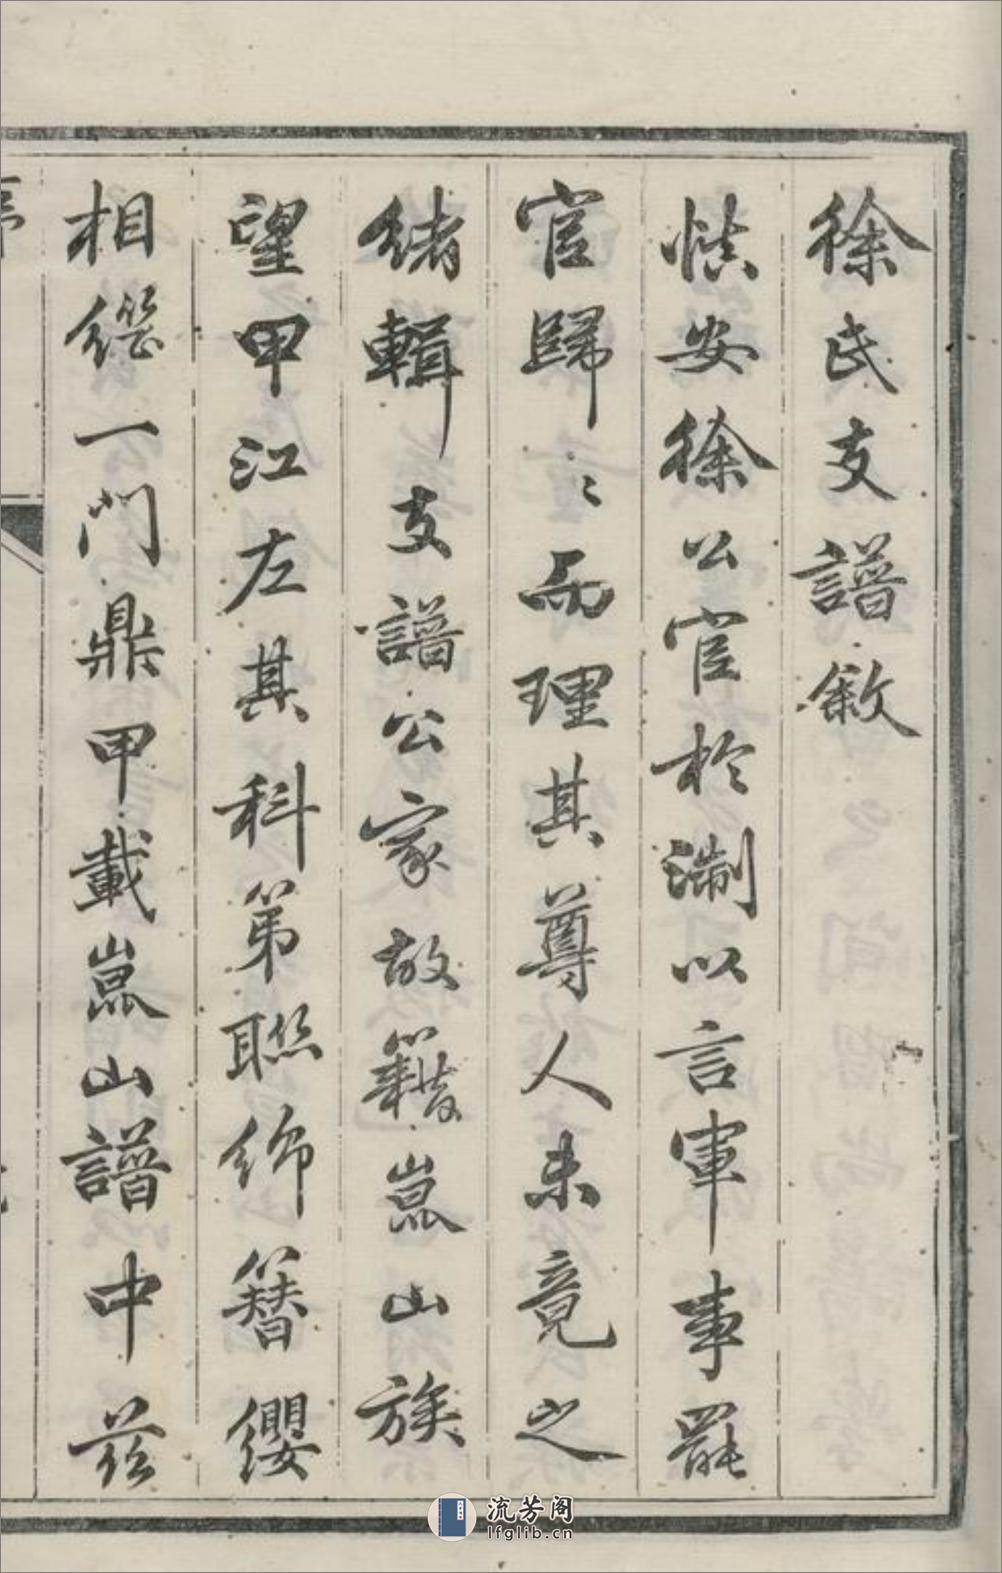 徐氏支譜敘
慎安徐公官於淛以言軍事罷
官歸〻而理其尊人未竟之
緒輯支譜公家故籍崑山族
望甲江左其科第聯綿簪纓
相繼一門鼎甲載崑山譜中茲
序
流芳阁
lfglib.cn